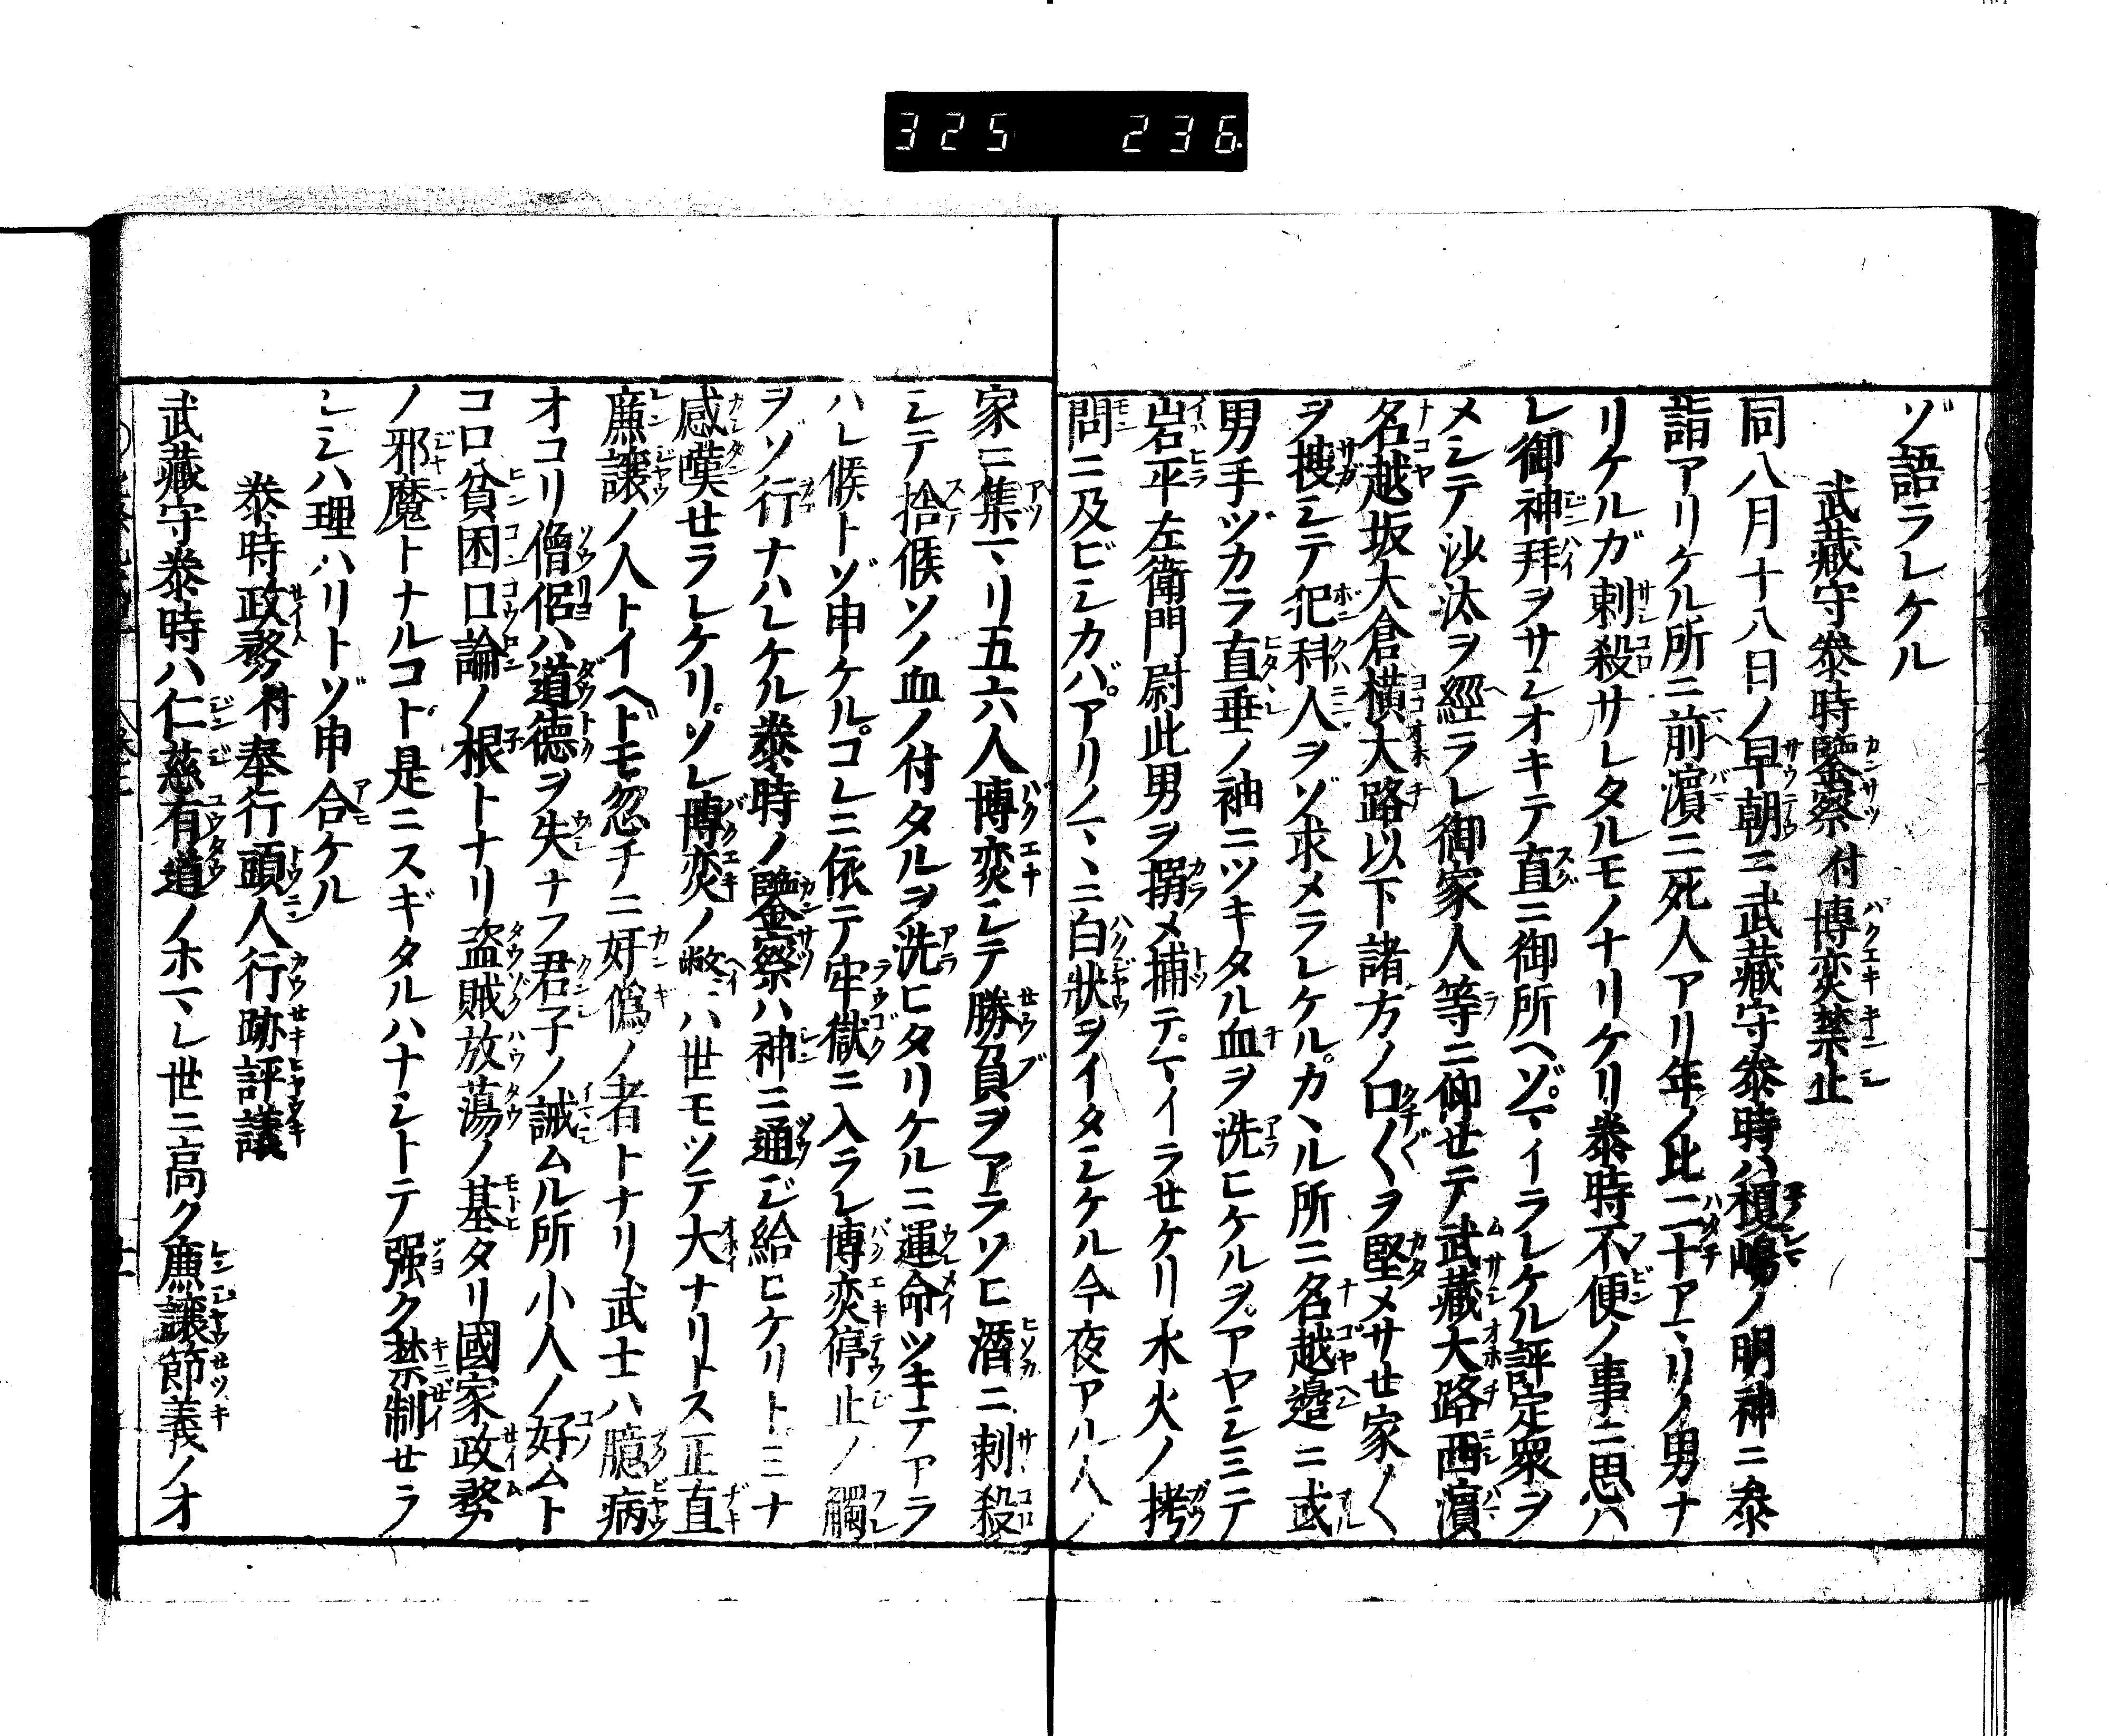 325 236
ゾ語ラレケル
武藏守泰時鑒察付博奕禁止
同八月十八日ノ早朝ニ武藏守泰時ハ榎嶋ノ明神ニ参
詣アリケル所ニ前濵ニ死人アリ年ノ比二十アマリノ男ナ
リケルガ刺殺サレタルモノナリケリ泰時不便ノ事ニ思ハ
レ御神拜ヲサシオキテ直ニ御所ヘゾマイラレケル評定衆ヲ
メシテ沙汰ヲ經ラレ御家人等ニ仰セテ武藏大路西濵
名越坂大倉横大路以下諸方ノ口〱ヲ堅メサせ家〱
ヲ搜シテ犯科人ヲゾ求メラレケルカヽル所ニ名越邉ニ或
男手ヅカラ直垂ノ袖ニツキタル血ヲ洗ヒケルヲアヤシミテ
岩平左衛門尉此男ヲ搦メ捕テマイラせケリ水火ノ拷
問ニ及ビシカバアリノマヽニ白狀ヲイタシケル今夜アル人ノ
家ニ集マリ五六人博奕シテ勝負ヲアラソヒ潛ニ刺殺
シテ捨候ソノ血ノ付タルヲ洗ヒタリケルニ運命ツキテアラ
ハレ候トゾ申ケルコレニ依テ牢獄ニ入ラレ博奕停止ノ觸
ヲゾ行ナハレケル泰時ノ鑒察ハ神ニ通ジ給ヒケリトミナ
感嘆せラレケリソレ博奕ノ弊ハ世モツテ大ナリトス正直
廉譲ノ人トイヘドモ忽チニ奸僞ノ者トナリ武士ハ臆病
オコリ僧侶ハ道德ヲ失ナフ君子ノ誡ムル所小人ノ好ムト
コロ貧困口論ノ根トナリ盗賊放蕩ノ基タリ國家政務
ノ邪魔トナルコト是ニスギタルハナシトテ强ク禁制せラ
レシハ理ハリトゾ申合ケル
泰時政務付奉行頭人行跡評議
武藏守泰時ハ仁慈有道ノホマレ世ニ高ク廉譲節義ノオ